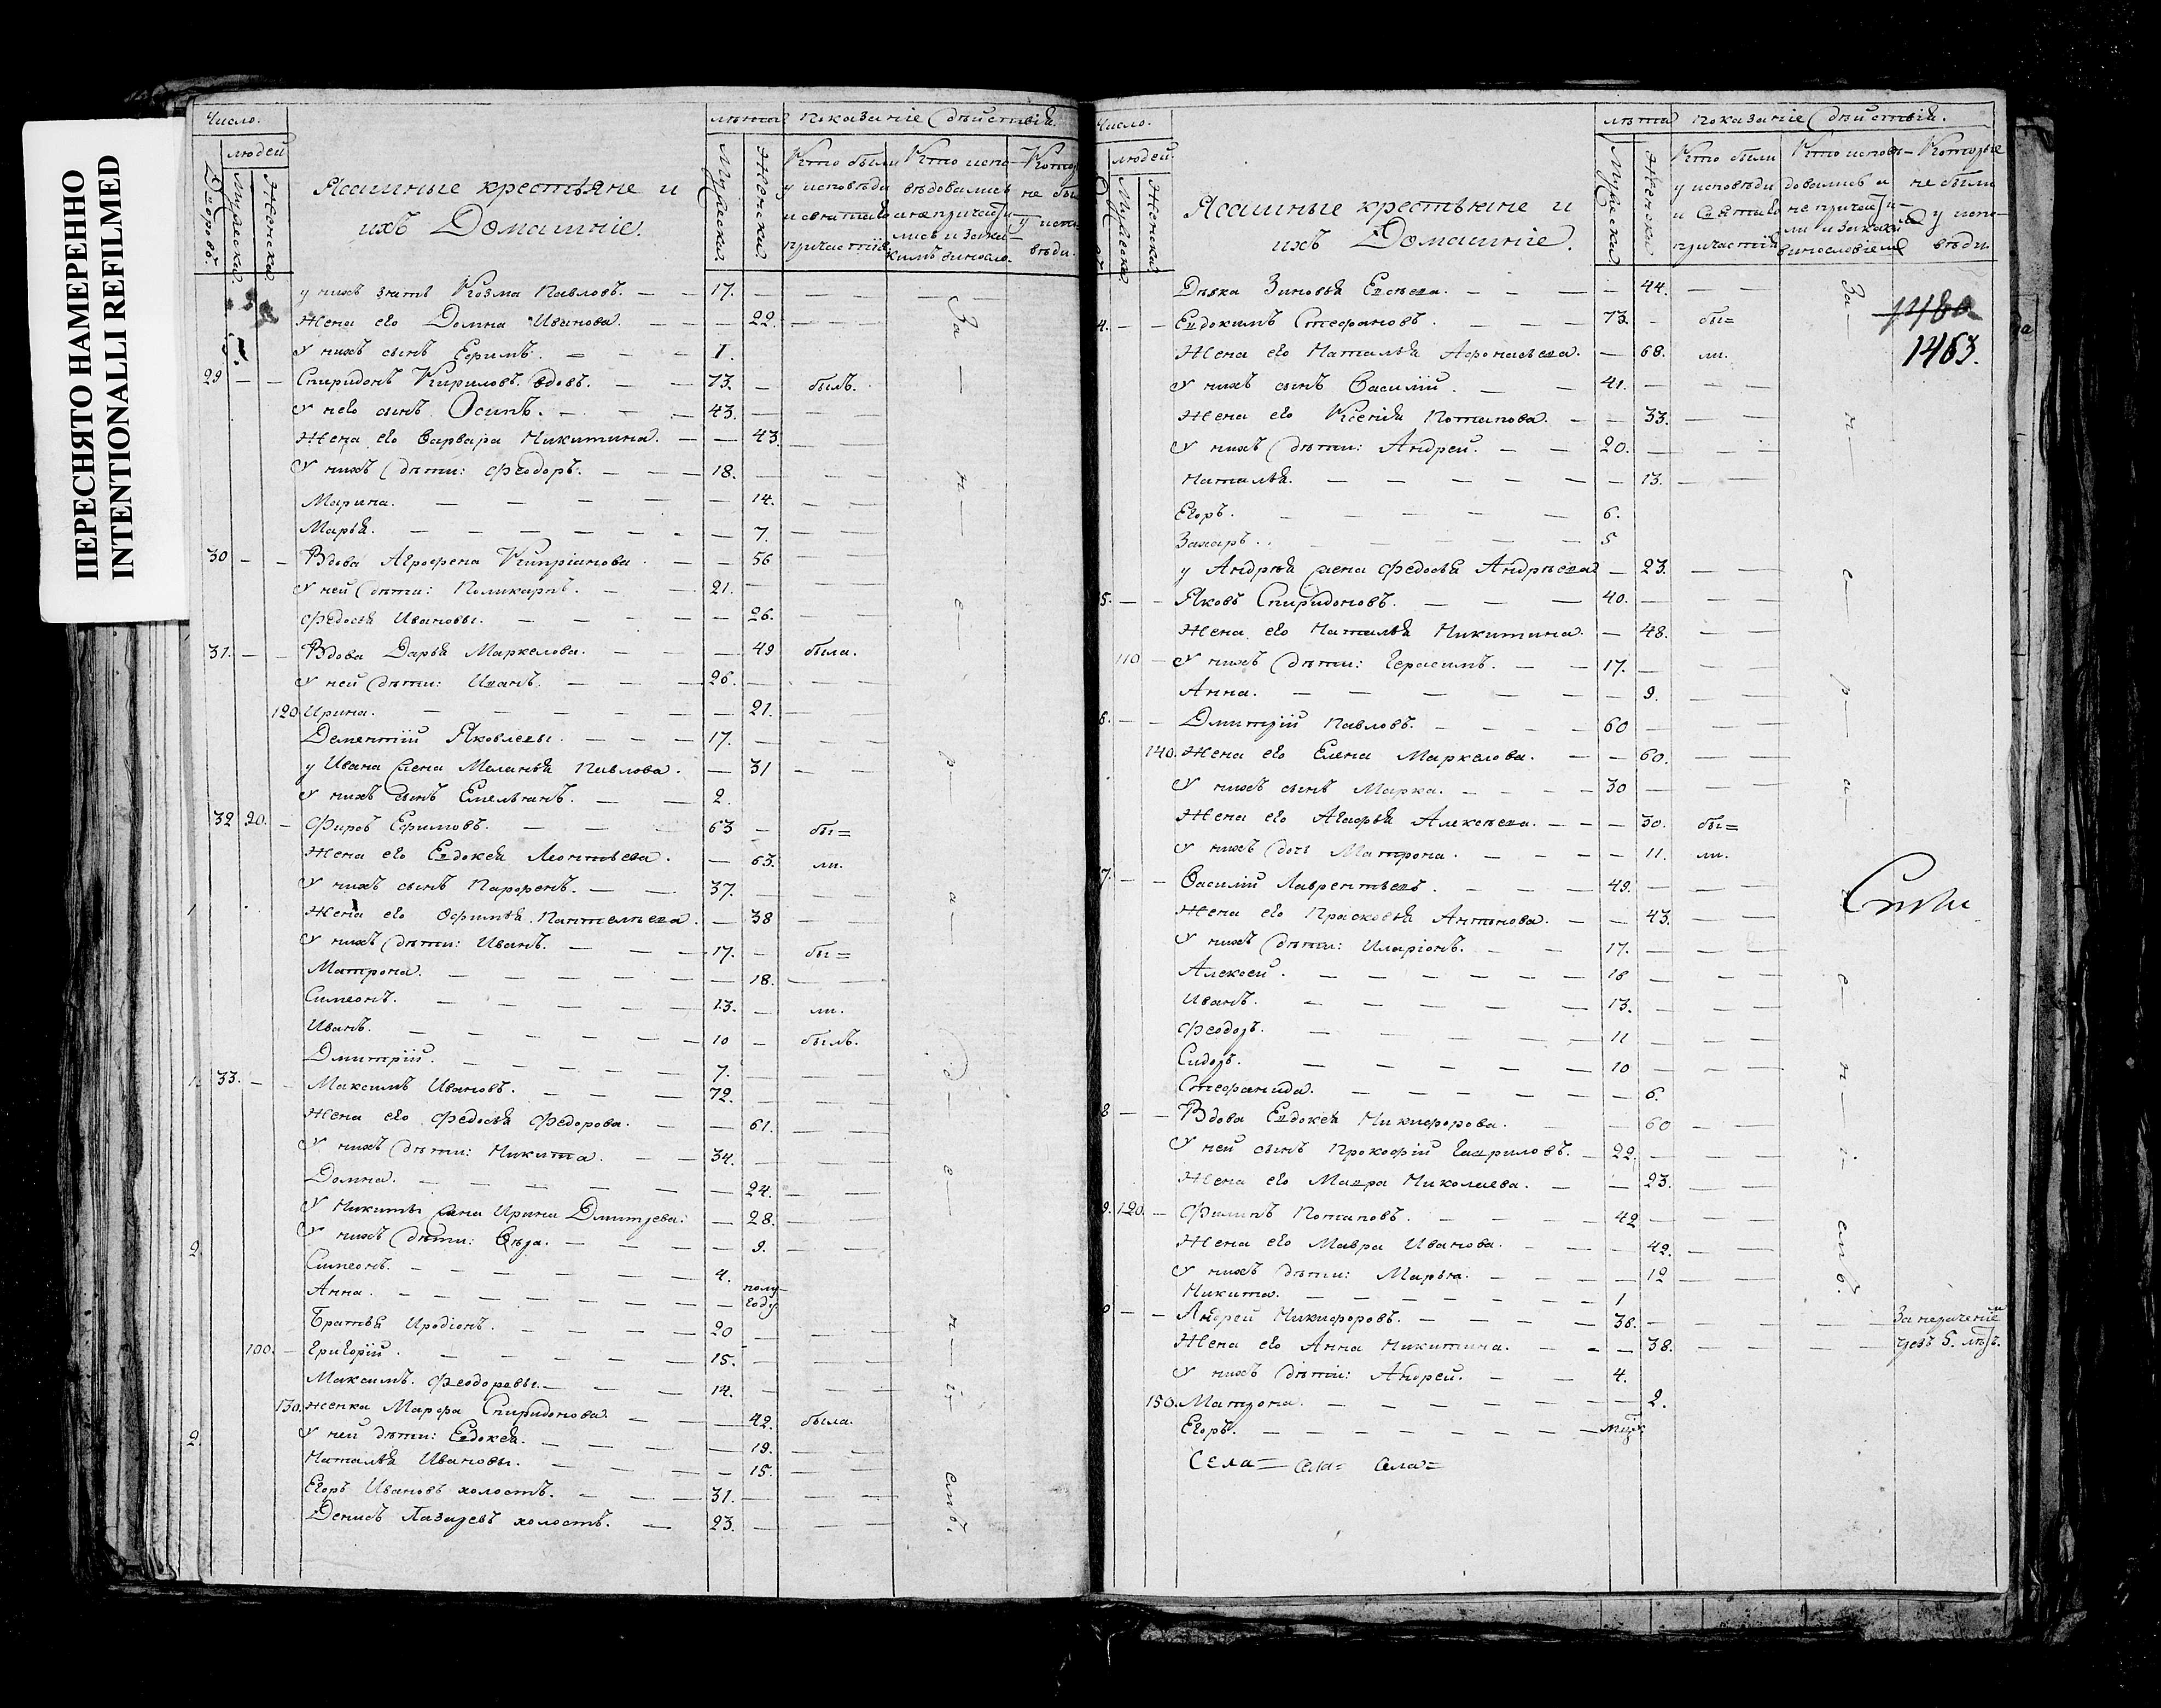 ПЕРЕСНЯТО НАМЕРЕННО
INTENTIONALLI REFILMED
Число.
людей
Дворовъ.
Мужеска
Женска
Ясашные крестьяне и
ихъ Домашніе.
лѣта
Мужеска
Женска
показаніе дѣйствій.
Кто были
у исповѣди
и святаго
причастія
Кто испо-
вѣдовались
а не причасти-
лись и за ка-
кимъ виносло.
Кото
не бы
у испо
вѣди.
у нихъ зять Козма Павловъ. 17.
Жена его Домна Иванова. 22.
У нихъ сынъ Ефимъ. 1.
29 Спиридонъ Кириловъ вдовъ. 73. былъ.
У него сынъ Осипъ. 43.
Жена его Варвара Никитина. 43
У нихъ дѣти: Феодоръ. 18.
Марина. 14.
Марья. 7.
30 Вдова Агрофена Кипріанова. 56
У ней дѣти: Поликарпъ. 21.
Федосья Ивановы. 26.
31. Вдова Дарья Маркелова. 49 была.
У ней дѣти: Иванъ. 26.
120 Ирина. 21.
Дементій Яковлевы. 17.
у Ивана жена Меланья Павлова. 31
У нихъ сынъ Емельянъ. 2.
32 20. Фирсъ Ефимовъ. 63 бы=
Жена его Евдокея Леонтьева. 63. ли.
У нихъ сынъ Парфенъ. 37.
Жена его Офимья Пантелѣева. 38
У нихъ дѣти: Иванъ. 17. бы=
Матрона. 18.
Симеонъ. 13. ли.
Иванъ. 10 былъ.
Дмитрій. 7.
33. Максимъ Ивановъ. 72.
Жена его Федосья Федорова. 61.
У нихъ дѣти: Никита. 34.
Домна. 24.
У Никиты жена Ирина Дмитрева. 28.
У нихъ дѣти: Вѣра. 9.
Симеонъ. 4.
Анна. полу-
году
Братья Иродіонъ. 20
100. Григорій. 15.
Максимъ Феодоровы. 14.
130. женка Марфа Спиридонова. 42. была.
У ней дѣти: Евдокея. 19.
Наталья Ивановы. 15.
Егоръ Ивановъ холостъ. 31.
Денисъ Лазаревъ холостъ. 23.
За не р а д е н і емъ.
Число.
людей
Мужеска
Женска
Ясашные крестьяне и
ихъ Домашніе.
лѣта
Мужеска
Женска
показаніе дѣйствій.
Кто были
у исповѣди
и Святаго
причастія
Кто исповѣ-
довались а
не причасти-
ли и за какимъ
винословіемъ
Которые
не были
у испо-
вѣди
1480
1463.
Дѣвка Зиновья Евсѣева. 44.
4. Евдокимъ Стефановъ. 73. бы=
Жена его Наталья Афонасьева. 68. ли.
У нихъ сынъ Василій. 41.
Жена его Ксенія Потапова. 33.
У нихъ дѣти: Андрей. 20.
Наталья. 13.
Егоръ. 6.
Захаръ. 5
у Андрѣя жена Федосья Андрѣева 23.
5. Яковъ Спиридоновъ. 40.
Жена его Наталья Никитина. 48.
110 У нихъ дѣти: Герасимъ. 17.
Анна. 9.
6. Дмитрій Павловъ. 60
140. Жена его Елена Маркелова. 60.
У нихъ сынъ Марка. 30
Жена его Агафья Алексѣева. 30. бы=
У нихъ дочь Матрона. 11. ли.
7. Василій Лаврентьевъ. 49.
Жена его Прасковья Антонова. 43.
У нихъ дѣти: Иларіонъ. 17.
Алексей. 16
Иванъ. 13.
Феодоръ. 11
Сидоръ. 10
Стефанида. 6.
8 Вдова Евдокея Никифорова. 60
У ней сынъ Прокофій Гавриловъ. 22.
Жена его Мавра Николаева. 23.
9. 120. Филипъ Потаповъ. 42
Жена его Мавра Иванова. 42.
У нихъ дѣти: Марья. 12
Никита. 1
0 Андрей Никифоровъ. 38. За нераченіемъ
Жена его Анна Никитина. 38. 5. лѣтъ.
У нихъ дѣти: Андрей. 4.
150. Матрона. 2.
Егоръ.
Села= села= села=
За н е р а д е н і емъ.